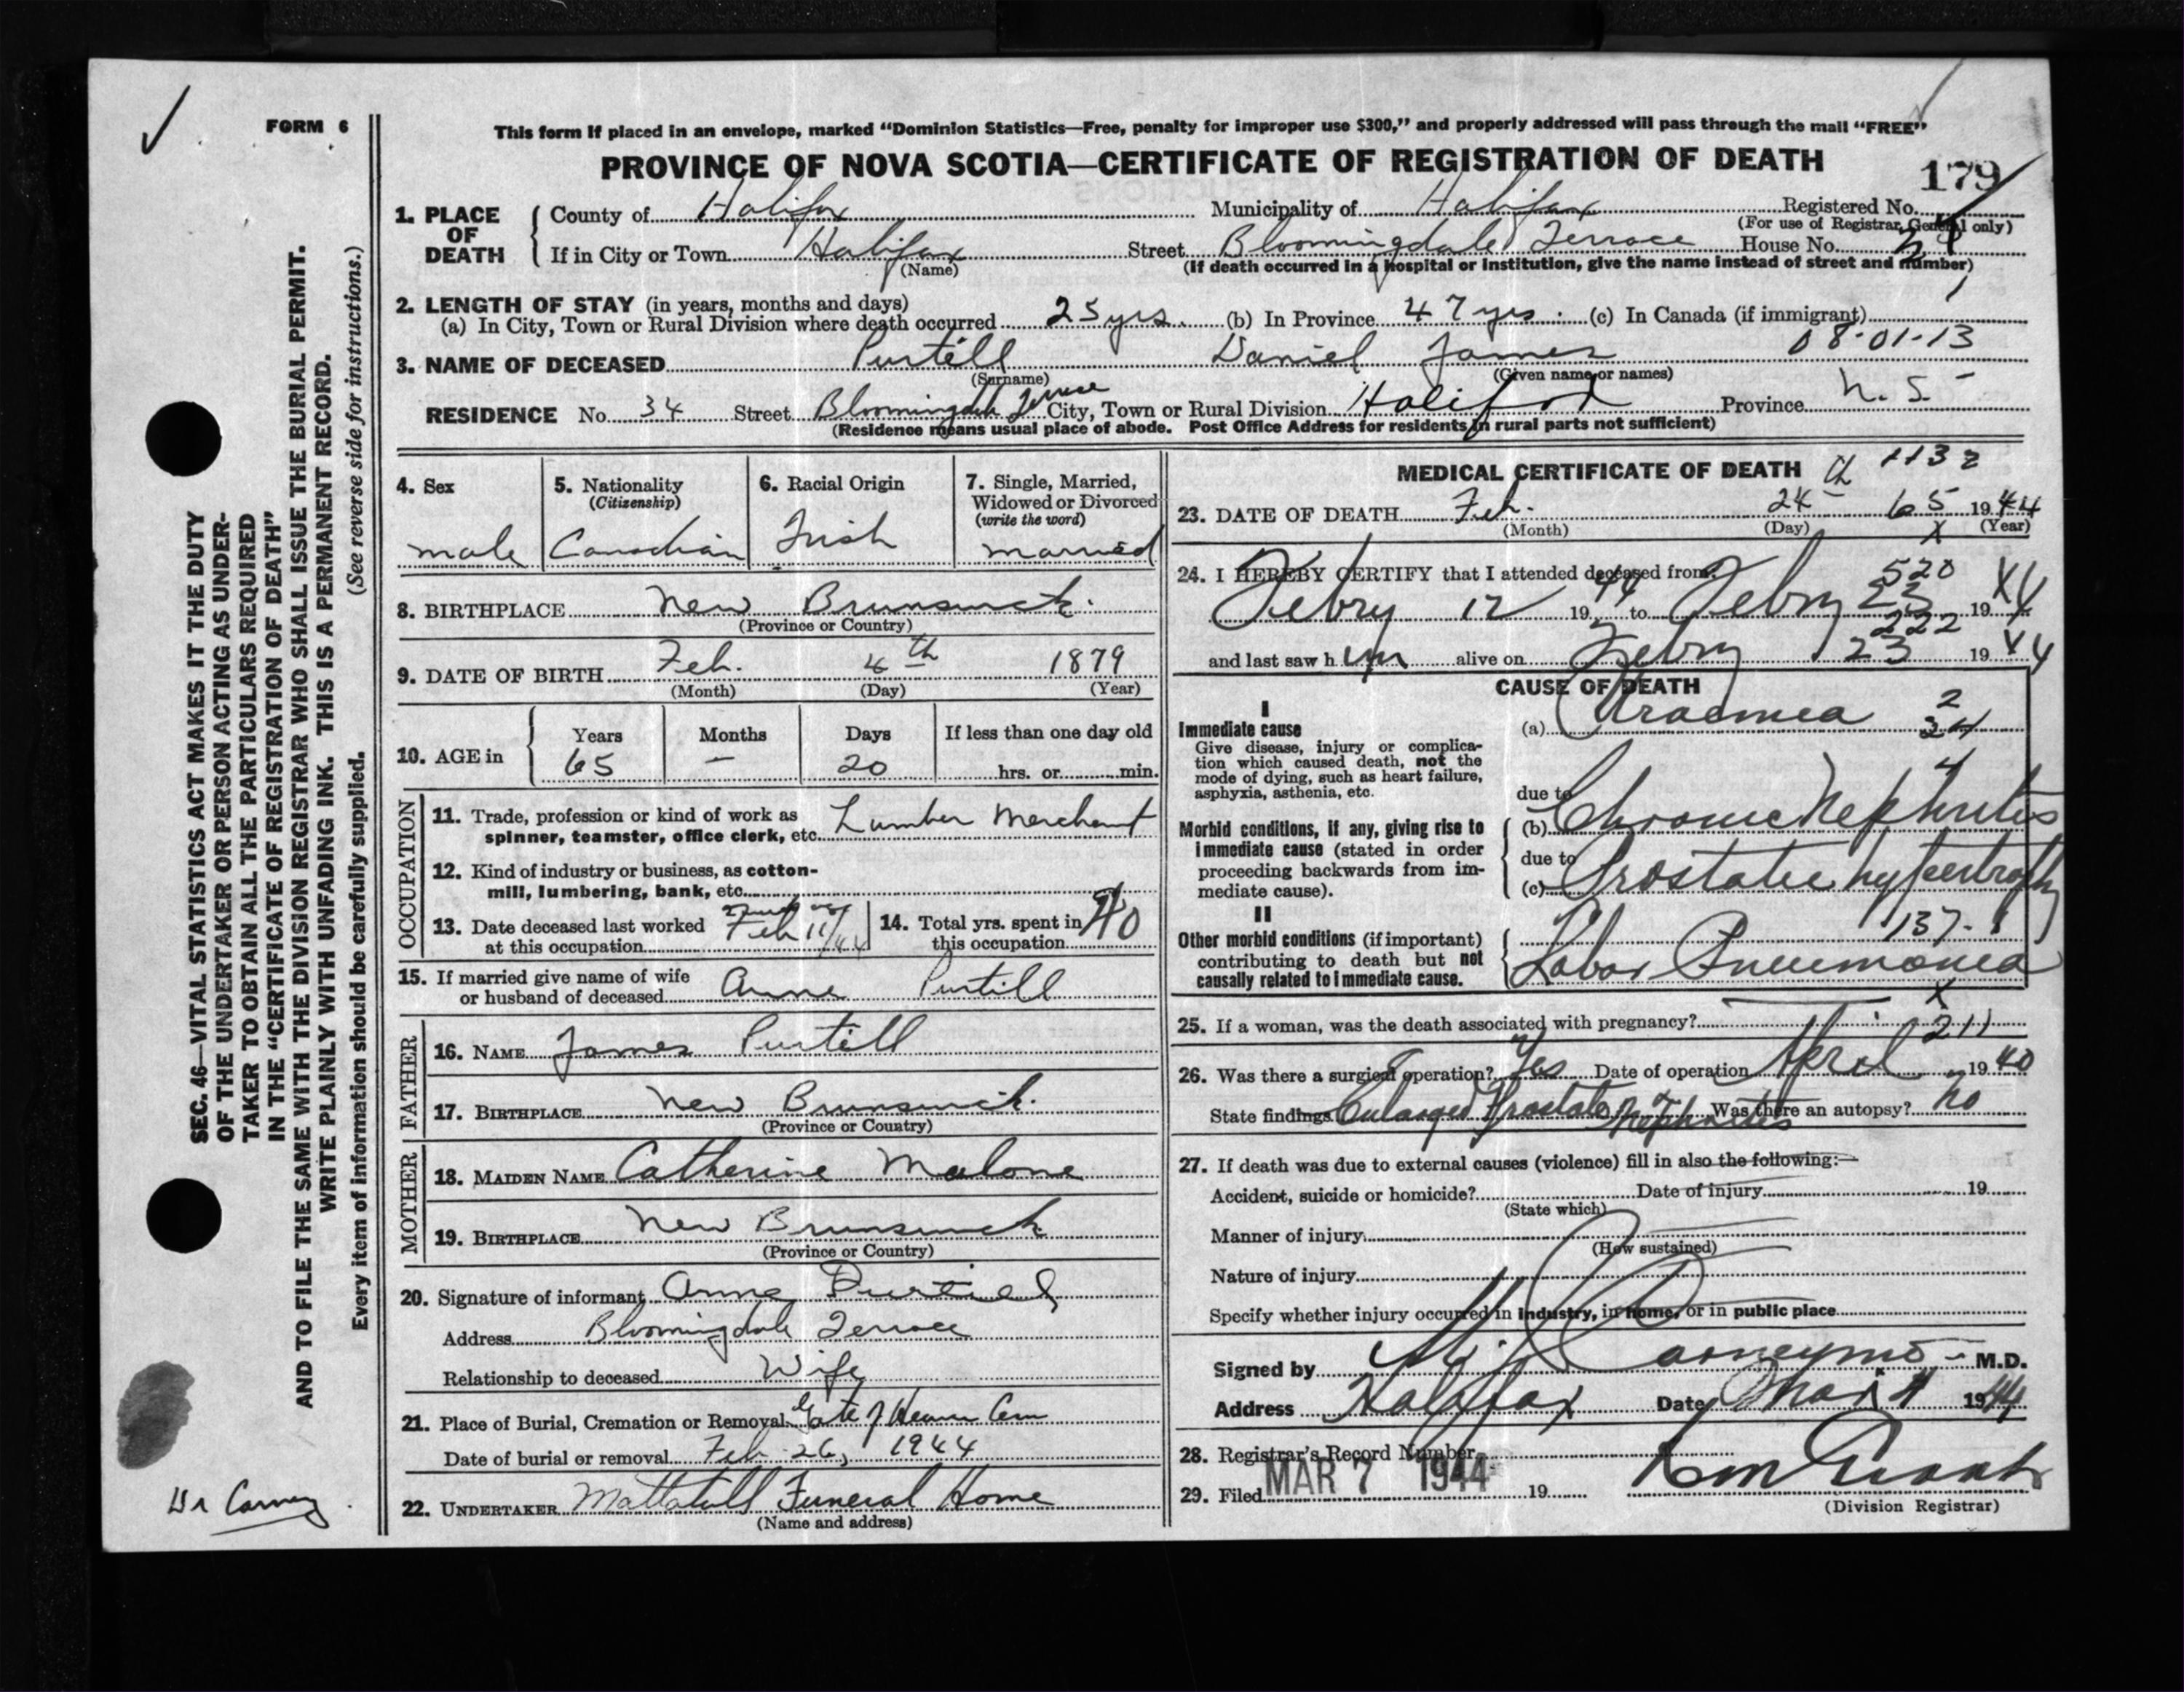 FORM 6
This form if placed in an envelope, marked "Dominion Statistics—Free, penalty for improper use $300," and properly addressed will pass through the mail "FREE"
PROVINCE OF NOVA SCOTIA—CERTIFICATE OF REGISTRATION OF DEATH
179
1. PLACE OF DEATH { County of Halifax Municipality of Halifax Registered No.
(For use of Registrar General only)
If in City or Town Halifax Street Bloomingdale Terrace House No. 34
(Name) (If death occurred in a hospital or institution, give the name instead of street and number)
2. LENGTH OF STAY (in years, months and days)
(a) In City, Town or Rural Division where death occurred 25 yrs. (b) In Province 47 yrs. (c) In Canada (if immigrant)
08-01-13
3. NAME OF DECEASED Purtill Daniel James
(Surname) (Given name or names)
RESIDENCE No. 34 Street Bloomingdale Terrace City, Town or Rural Division Halifax Province N.S.
(Residence means usual place of abode. Post Office Address for residents in rural parts not sufficient)
4. Sex
male
5. Nationality
(Citizenship)
Canadian
6. Racial Origin
Irish
7. Single, Married,
Widowed or Divorced
(write the word)
married
8. BIRTHPLACE New Brunswick.
(Province or Country)
9. DATE OF BIRTH Feb. 4th 1879
(Month) (Day) (Year)
10. AGE in { Years Months Days If less than one day old
65 — 20 hrs. or min.
OCCUPATION
11. Trade, profession or kind of work as
spinner, teamster, office clerk, etc. Lumber Merchant
12. Kind of industry or business, as cotton-
mill, lumbering, bank, etc.
13. Date deceased last worked
at this occupation Feb 11/44
14. Total yrs. spent in
this occupation 40
15. If married give name of wife
or husband of deceased Anne Purtill
FATHER
16. NAME James Purtill
17. BIRTHPLACE New Brunswick.
(Province or Country)
MOTHER
18. MAIDEN NAME Catherine Malone
19. BIRTHPLACE New Brunswick
(Province or Country)
20. Signature of informant Anne Purtill
Address Bloomingdale Terrace
Relationship to deceased Wife
21. Place of Burial, Cremation or Removal Gate of Heaven Cem
Date of burial or removal Feb 26, 1944
22. UNDERTAKER Mattatall Funeral Home
(Name and address)
MEDICAL CERTIFICATE OF DEATH
1132
23. DATE OF DEATH Feb. 24th 65 1944
(Month) (Day) (Year)
x
24. I HEREBY CERTIFY that I attended deceased from
520
Febry 12 1944 to Febry 23 1944
222
and last saw him alive on Febry 23 1944
CAUSE OF DEATH
I
Immediate cause
Give disease, injury or complica-
tion which caused death, not the
mode of dying, such as heart failure,
asphyxia, asthenia, etc.
(a) Uraemea
2
34
due to
Morbid conditions, if any, giving rise to
immediate cause (stated in order
proceeding backwards from im-
mediate cause).
(b) Chronic Nephritis
due to
(c) Prostatic hypertrophy
137-1
II
Other morbid conditions (if important)
contributing to death but not
causally related to immediate cause.
Lobar Pneumonia
x
25. If a woman, was the death associated with pregnancy?
211
26. Was there a surgical operation? Yes Date of operation April 1940
State findings Enlarged Prostate Nephritis Was there an autopsy? no
27. If death was due to external causes (violence) fill in also the following:—
Accident, suicide or homicide? Date of injury 19
(State which)
Manner of injury
(How sustained)
Nature of injury
Specify whether injury occurred in industry, in home, or in public place
Signed by Carney MD — M.D.
Address Halifax Date Mar 4 1944
28. Registrar's Record Number
29. Filed MAR 7 1944 19
(Division Registrar)
SEC. 46—VITAL STATISTICS ACT MAKES IT THE DUTY
OF THE UNDERTAKER OR PERSON ACTING AS UNDER-
TAKER TO OBTAIN ALL THE PARTICULARS REQUIRED
IN THE "CERTIFICATE OF REGISTRATION OF DEATH"
AND TO FILE THE SAME WITH THE DIVISION REGISTRAR WHO SHALL ISSUE THE BURIAL PERMIT.
WRITE PLAINLY WITH UNFADING INK. THIS IS A PERMANENT RECORD.
Every item of information should be carefully supplied. (See reverse side for instructions.)
Dr Carney